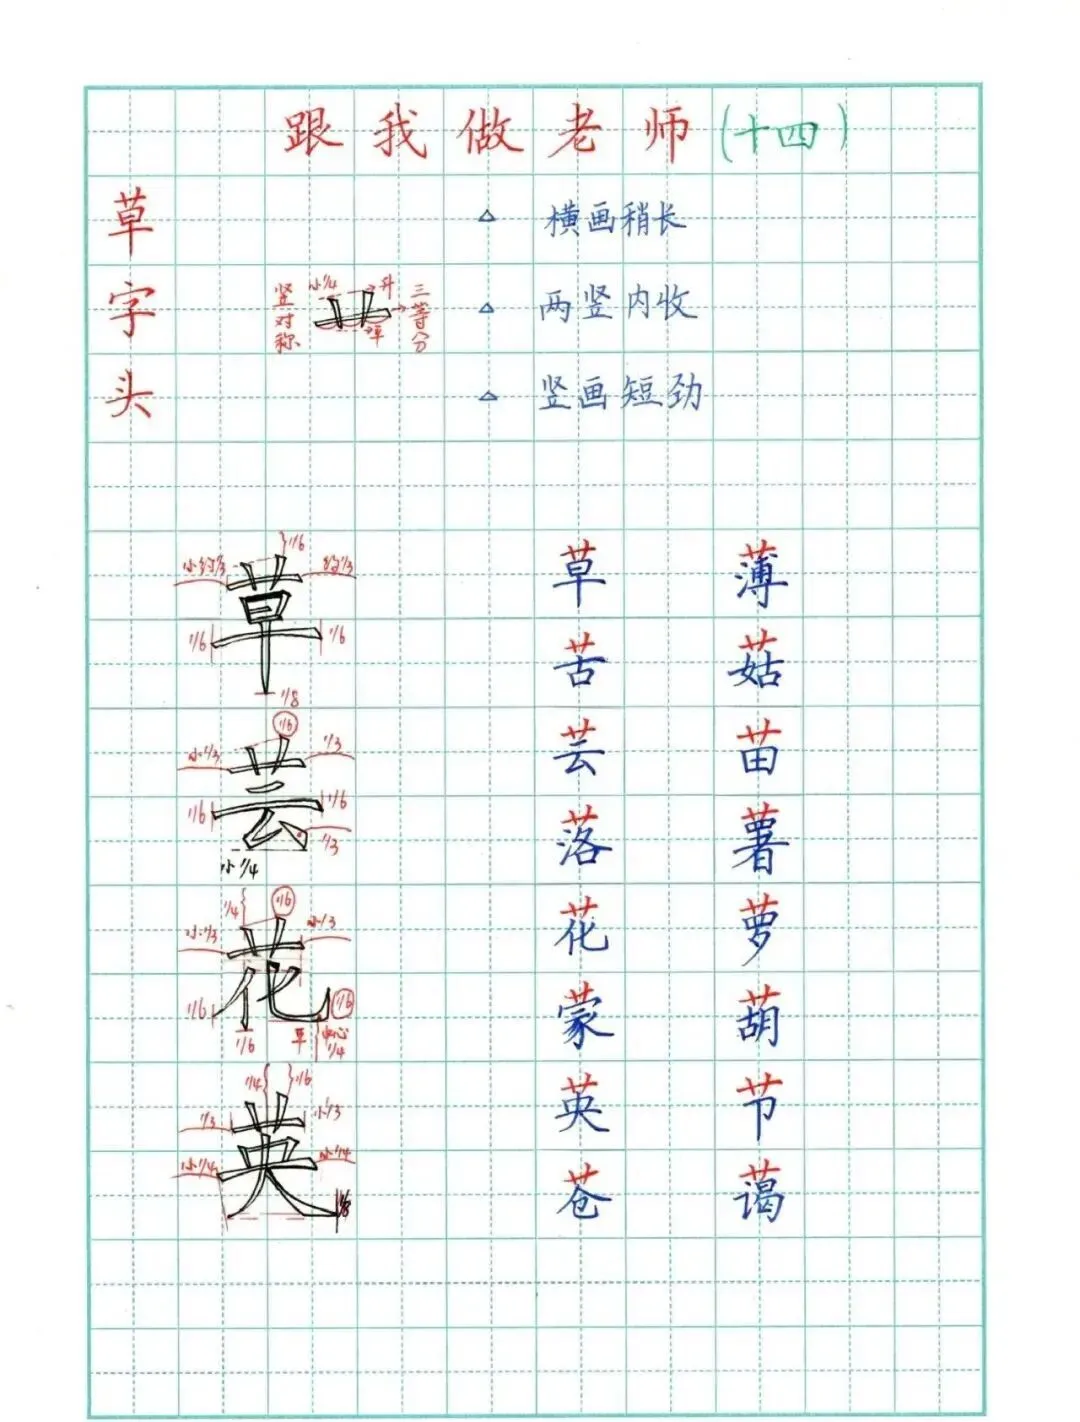 跟我做老师(十四)
草字头
竖对称
小1/4
升
三等分
草
△ 横画稍长
△ 两竖内收
△ 竖画短劲
小约1/3
1/6
约1/3
草
1/6
1/6
1/8
小1/3
1/6
1/3
芸
1/6
1/6
1/3
小1/4
1/4
1/6
小1/3
小1/3
花
1/6
1/6
1/6
草
中心
1/4
1/4
1/6
1/3
小1/3
英
小1/4
小1/4
1/8
草 薄
苦 菇
芸 苗
落 薯
花 萝
蒙 葫
英 节
苍 蔼